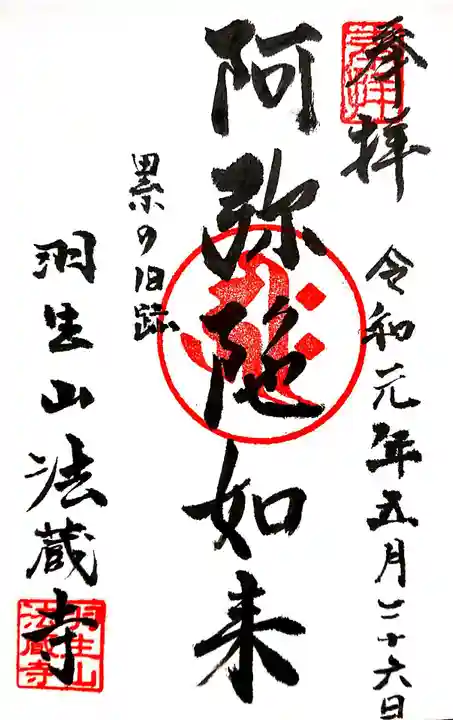 奉拝
令和元年五月二十六日
阿弥陀如来
累の旧跡
羽生山法蔵寺
羽生山
法蔵寺